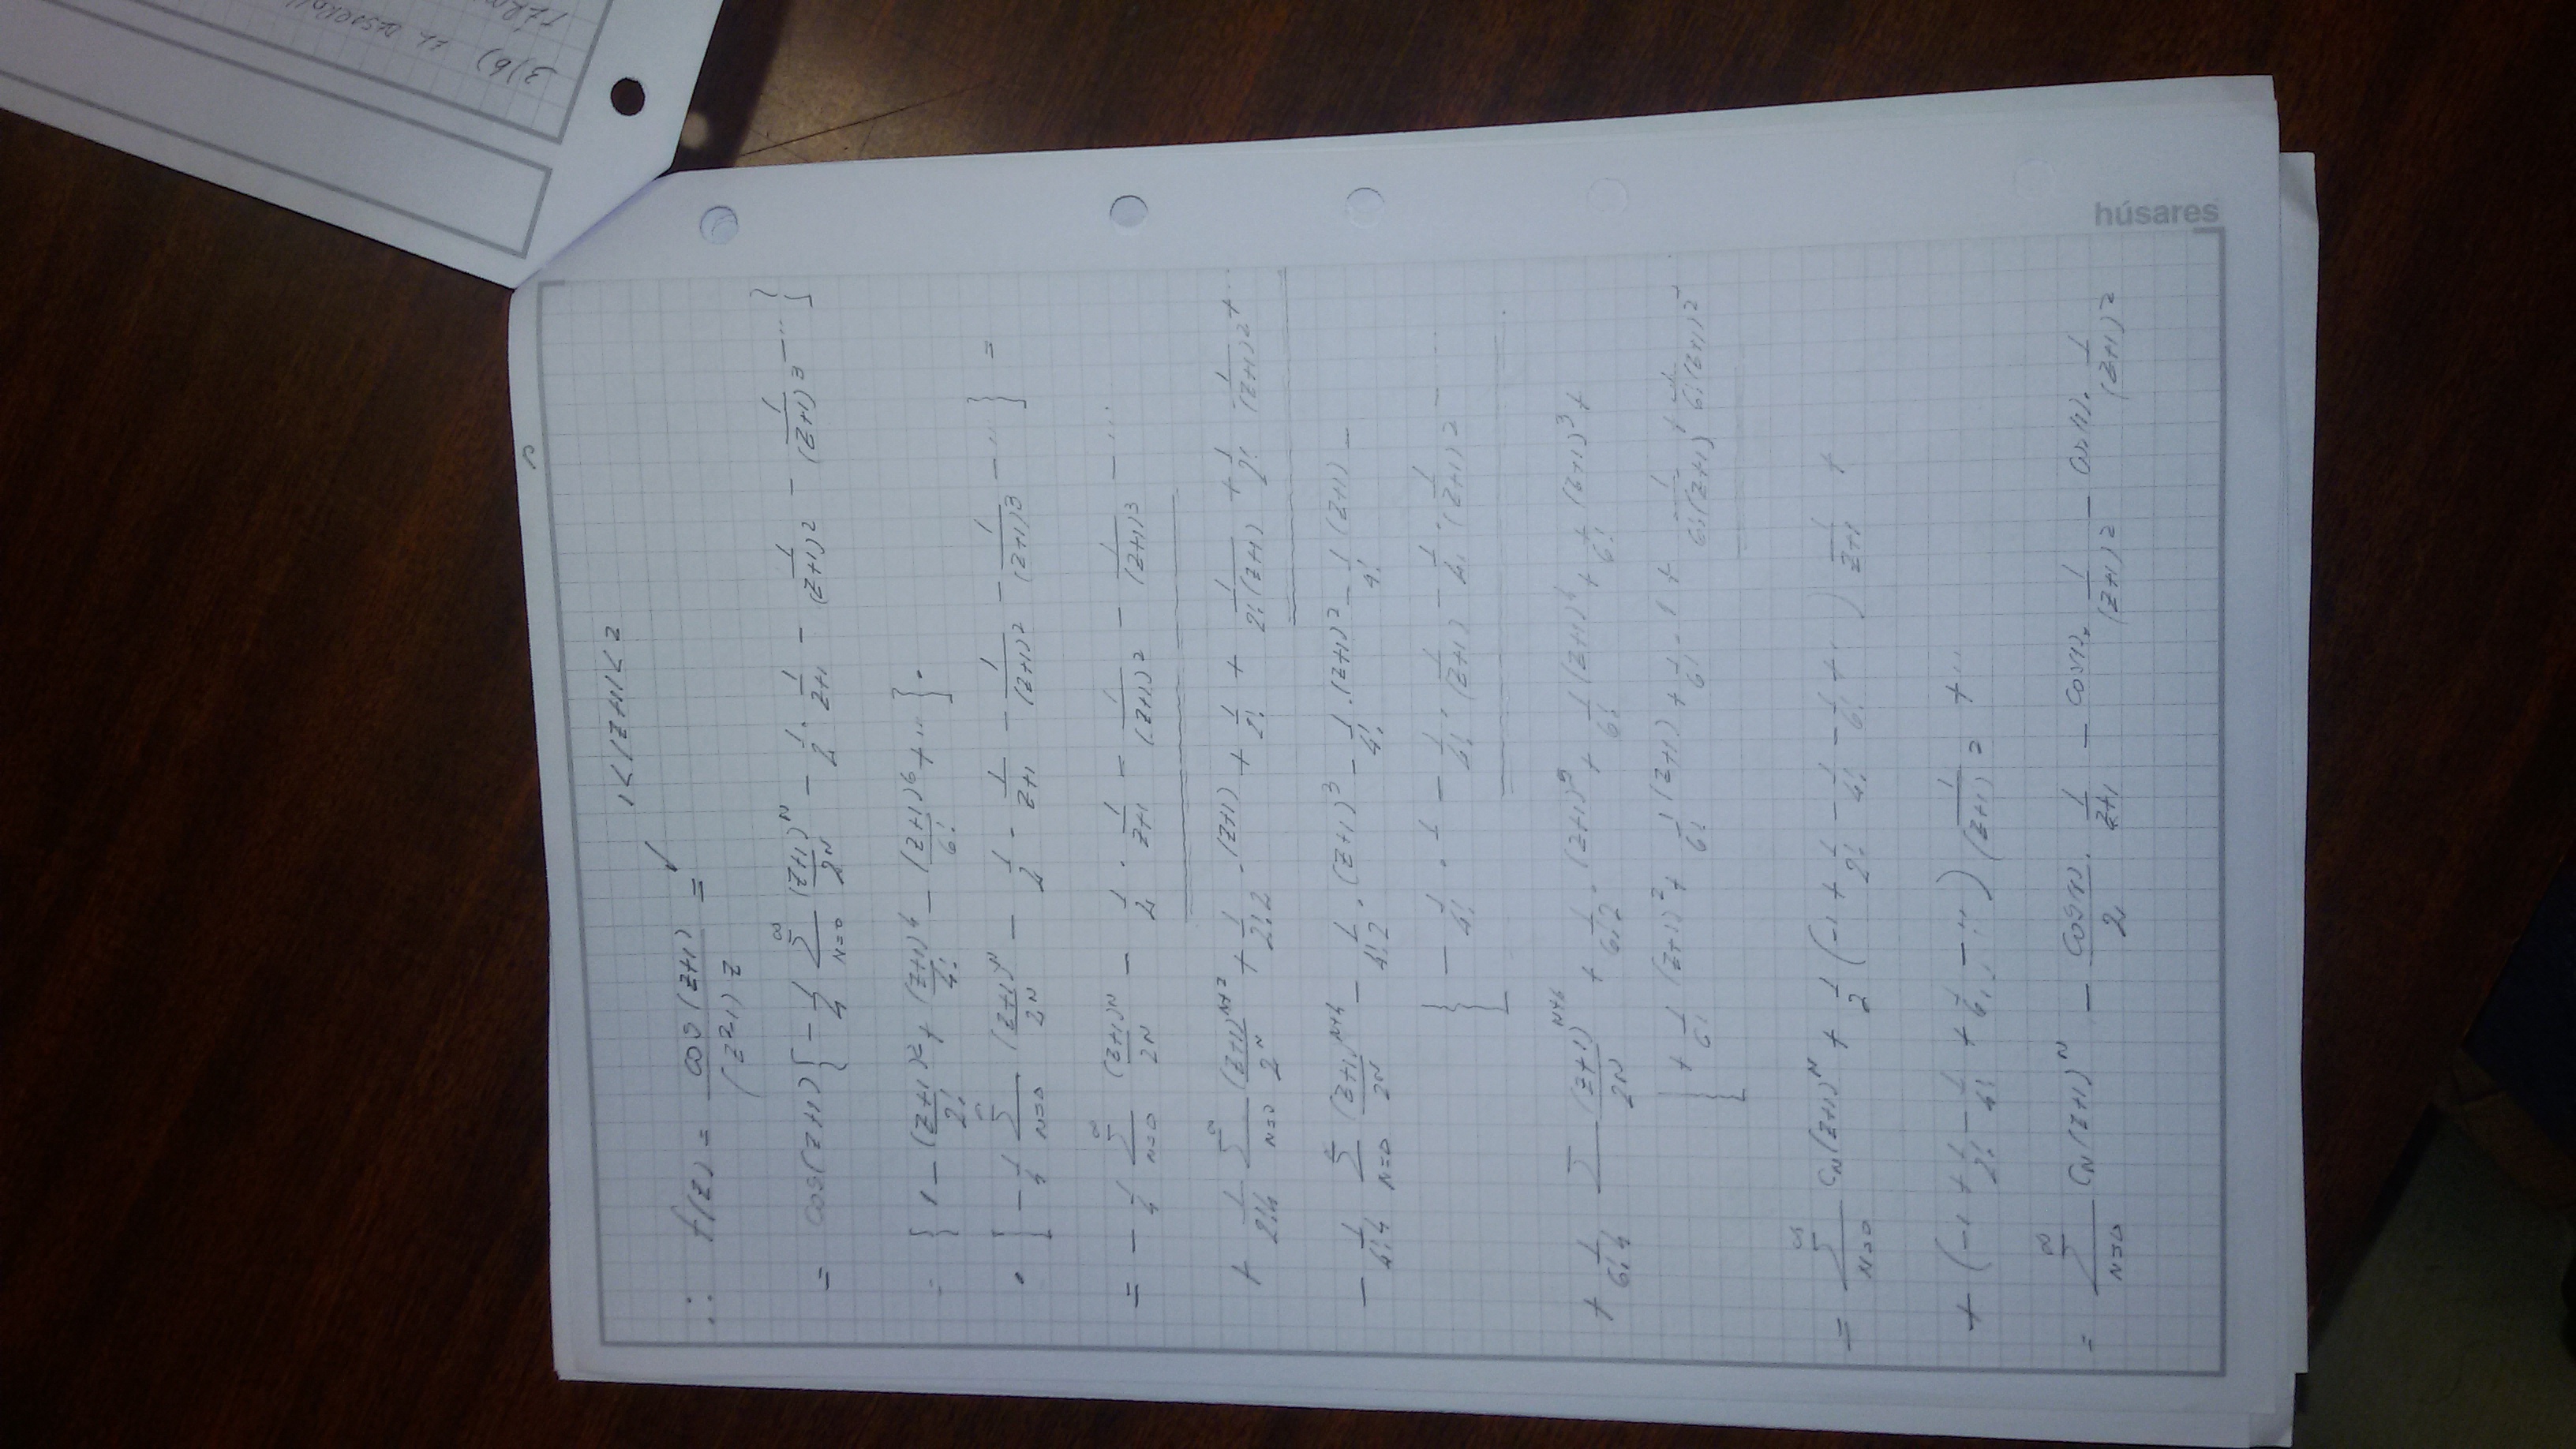 húsares
1<|z+1|<2
∴ f(z) = cos(z+1) / (z²-1) z =
= cos(z+1) { - 1/4 ∑_{N=0}^{∞} (z+1)^N / 2^N - 1/2 · 1/(z+1) - 1/(z+1)² - 1/(z+1)³ - ... }
= { 1 - (z+1)²/2! + (z+1)⁴/4! - (z+1)⁶/6! + ... } ·
· { - 1/4 ∑_{N=0}^{∞} (z+1)^N / 2^N - 1/2 · 1/(z+1) - 1/(z+1)² - 1/(z+1)³ - ... } =
= - 1/4 ∑_{N=0}^{∞} (z+1)^N / 2^N - 1/2 · 1/(z+1) - 1/(z+1)² - 1/(z+1)³ - ...
+ 1/2!4 ∑_{N=0}^{∞} (z+1)^{N+2} / 2^N + 1/2!2 · (z+1) + 1/2! + 1/2!(z+1) + 1/2! · 1/(z+1)² + ...
- 1/4!4 ∑_{N=0}^{∞} (z+1)^{N+4} / 2^N - 1/4!2 · (z+1)³ - 1/4! · (z+1)² - 1/4! (z+1) -
{ - 1/4! · 1 - 1/4! · 1/(z+1) - 1/4! · 1/(z+1)² - ...
+ 1/6!4 ∑ (z+1)^{N+6} / 2^N + 1/6!2 · (z+1)⁵ + 1/6! (z+1)⁴ + 1/6! (z+1)³ +
{ + 1/6! (z+1)² + 1/6! (z+1) + 1/6! · 1 + 1/6!(z+1) + 1/6!(z+1)² +
= ∑_{N=0}^{∞} C_N (z+1)^N + 1/2 (-1 + 1/2! - 1/4! - 1/6! + · ) 1/(z+1) +
+ (-1 + 1/2! - 1/4! + 1/6! - ...) 1/(z+1)² + ...
= ∑_{N=0}^{∞} C_N (z+1)^N - cos(1)/2 · 1/(z+1) - cos(1) · 1/(z+1)² - cos(1) · 1/(z+1)²
3)b) EL DESARROLL